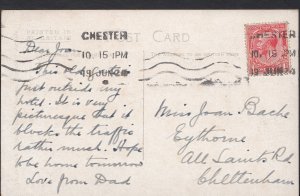 PRINTED IN
POST CARD
CHESTER
10. 15 PM
19 JUN
CHESTER
10. 15 PM
19 JUN
Dear Joan
This is
just outside my
hotel. It is very
picturesque but it
blocks the traffic
rather much. Hope
to be home tomorrow
Love from Dad
Miss Joan Bache
Eythorne
All Saints Rd
Cheltenham